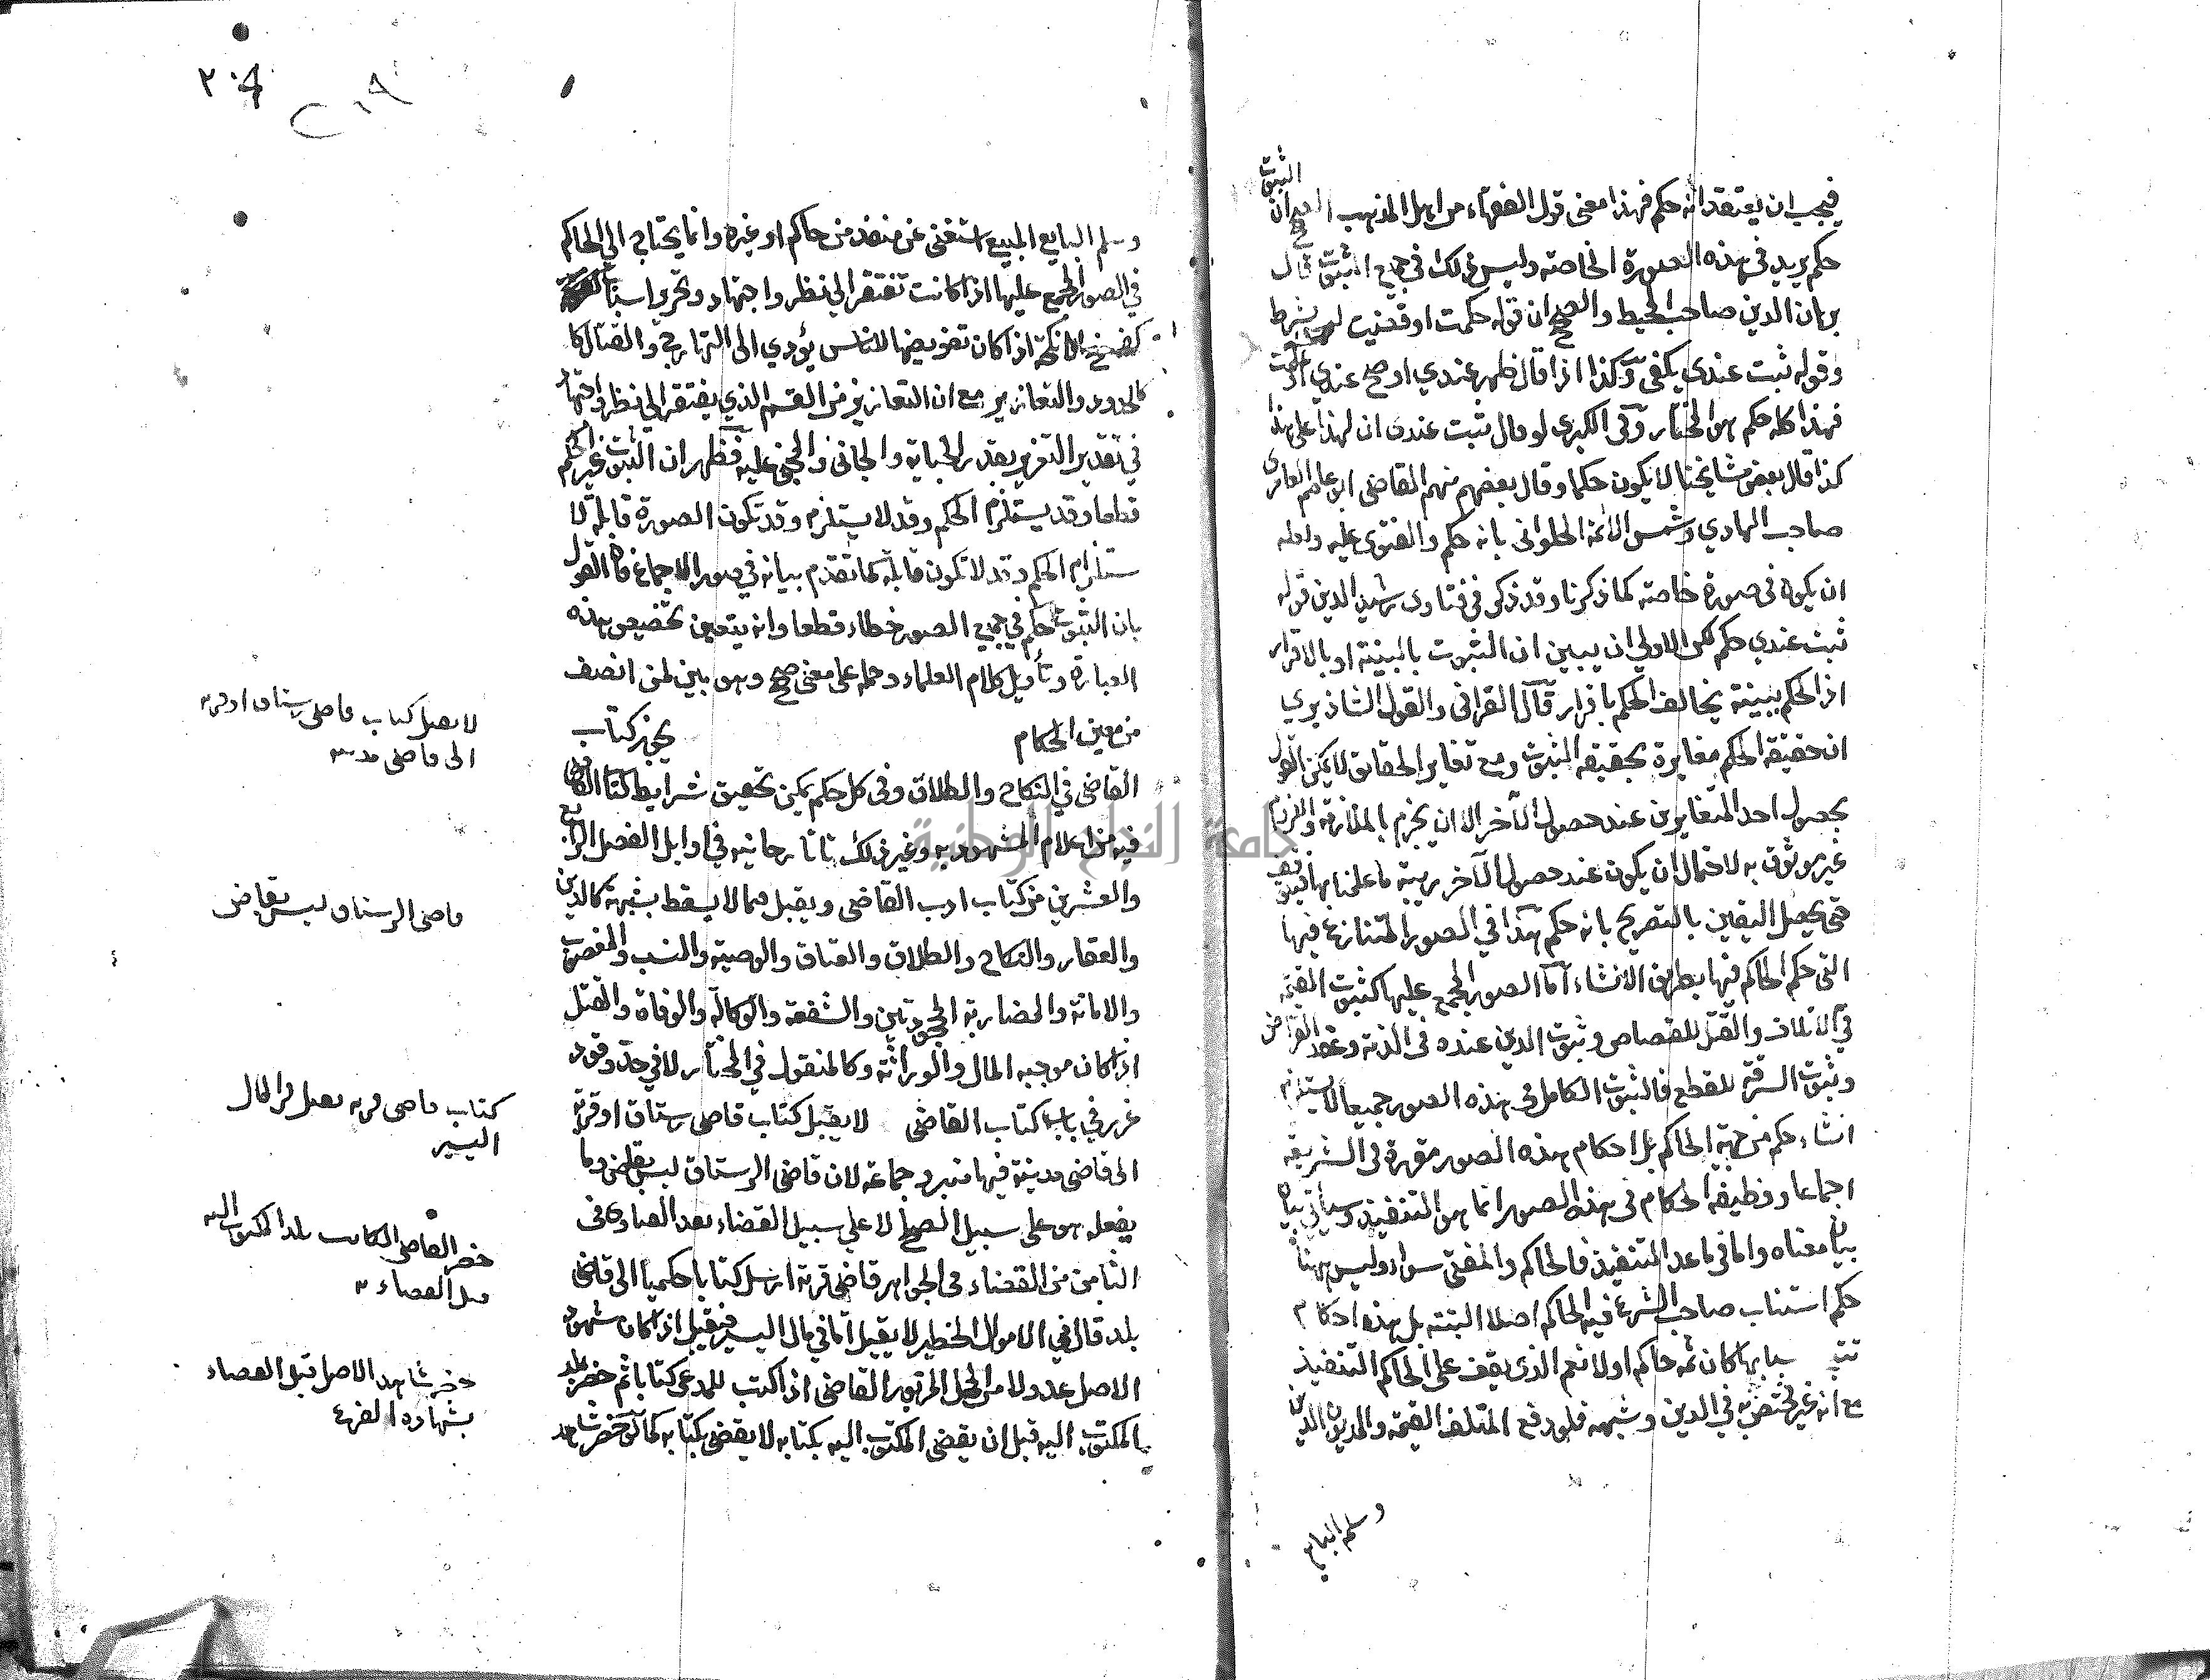 فيجب ان يعتقد انه حكم فهذا معنى قول الفقهاء من اهل المذهب الصحيح ان الثبوت
حكم يريد في هذه الصورة الخاصة وليس ذلك في جميع الثبوت قال
برهان الدين صاحب المحيط والصحيح ان قوله حكمت او قضيت ليس بشرط
وقوله ثبت عندي يكفي وكذا اذا قال ظهر عندي او صح عندي
فهذا كله حكم هو المختار وفى الكبرى لو قال ثبت عندى ان لهذا على هذا
كذا قال بعض مشايخنا لا يكون حكما وقال بعضهم منهم القاضى ابو عاصم العامرى
صاحب الهادي وشمس الائمة الحلوانى بانه حكم والفتوى عليه ولعله
ان يكون فى صورة خاصة كما ذكرنا وقد ذكر فى فتاوى رشيد الدين قوله
ثبت عندي حكم لكن الاولي ان يبين ان الثبوت بالبينة او بالاقرار
اذ الحكم ببينة يخالف الحكم باقرار قال القرافى والقول الشاذ يري
ان حقيقة الحكم مغايرة بحقيقة الثبوت ومع تغاير الحقائق لا يمكن القول
بحصول احد المتغايرين عند حصول الآخر الا ان يجزم بالملازمة واللزوم
غير موثوق به لاحتمال ان يكون عند حصول الآخر ريبة ما علمنا بها
حتى يحصل اليقين بالتصريح بانه حكم هذا في الصور المتنازع فيها
التى حكم الحاكم فيها بطريق الانشاء اما الصور المجمع عليها كثبوت القيمة
في الاتلاف والقتل للقصاص وثبوت الدين عنده فى الذمة وعقد القراض
وثبوت السرقة للقطع فالثبوت الكامل فى هذه الصور جميعا لا يستلزم
انشاء حكم من جهة الحاكم بل احكام هذه الصور مقررة فى الشريعة
اجماعا ووظيفة الحكام فى هذه الصور انما هو التنفيذ وسياتي بيان
بيان معناه واما في ما عدا التنفيذ فالحاكم والمفتى سواء وليس ههنا
حكم استناب صاحب الشرع فيه الحاكم اصلا البتة بل هذه احكام
تتبع اسبابها كان ثمة حاكم او لا نعم الذى يقف على الحاكم التنفيذ
مع انه غير مختص به في الدين وشبهه فلو دفع المتلف القيمة والمديون الدين
وسلم البايع
٢٠٩
وسلم البايع المبيع استغنى عن منفذ من حاكم او غيره وانما يحتاج الي الحاكم
في الصور المجمع عليها اذا كانت تفتقر الي نظر واجتهاد وتحرير اسباب
كفسخ الانكحة اذا كان تفويضها للناس يؤدي الى التهارج والقتال كا
كالحدود والتعازير مع ان التعازير من القسم الذي يفتقر الي نظر واجتهاد
في تقدير التعزير بقدر الجناية والجانى والمجنى عليه فظهر ان الثبوت غير الحكم
قطعا وقد يستلزم الحكم وقد لا يستلزم وقد تكون الصورة قابلة لا
ستلزام الحكم وقد لا تكون قابلة كما تقدم بيانه في صور الاجماع فاما القول
بان الثبوت حكم في جميع الصور خطاء قطعا وانه يتعين تخصيص هذه
العبارة وتأويل كلام العلماء وحمله على معنى صحيح وهو بين لمن انصف
من معين الحكام يجوز كتاب
القاضى في النكاح والطلاق وفى كل حكم يمكن تحقيق شرايط كتاب القاضى
فيه من اعلام المشهود به وغير ذلك تاتارخانيه في اوايل الفصل الرابع
والعشرين من كتاب ادب القاضى ويقبل مما لا يسقط بشبهة كالدين
والعقار والنكاح والطلاق والعتاق والوصية والنسب والمغصوب
والامانة والمضاربة المجحودتين والشفعة والوكالة والوفاة والقتل
اذا كان موجبه المال والوراثة وكالمنقول في المختار لا في حد وقود
غرر في باب كتاب القاضى لا يقبل كتاب قاضى رستاق او قرية
الى قاضى مدينة فيها منبر وجماعة لان قاضى الرستاق ليس بقاضى وما
يفعله هو على سبيل الصلح لا علي سبيل القضاء بعد العمادى فى
الثامن من القضاء فى الجواهر قاضى قرية ارسل كتابا حكميا الى قاضى
بلد قال في الاموال الخطير لا يقبل اما في مال اليسير فيقبل اذا كان شهود
الاصل عدولا من المحل المزبور القاضى اذا كتب للمدعى كتابا ثم حضر بلد
المكتوب اليه قبل ان يقضى المكتوب اليه بكتابه لا يقضى بكتابه كما لو حضر شاهد
لا يقبل كتاب قاضى رستاق او قرية
الى قاضى مدينة
قاضى الرستاق ليس بقاض
كتاب قاضى قرية يقبل فى المال
اليسير
حضر القاضى الكاتب بلد المكتوب اليه
قبل القضاء
حضر شاهد الاصل قبل القضاء
بشهادة الفرع
جامعة النجاح الوطنية